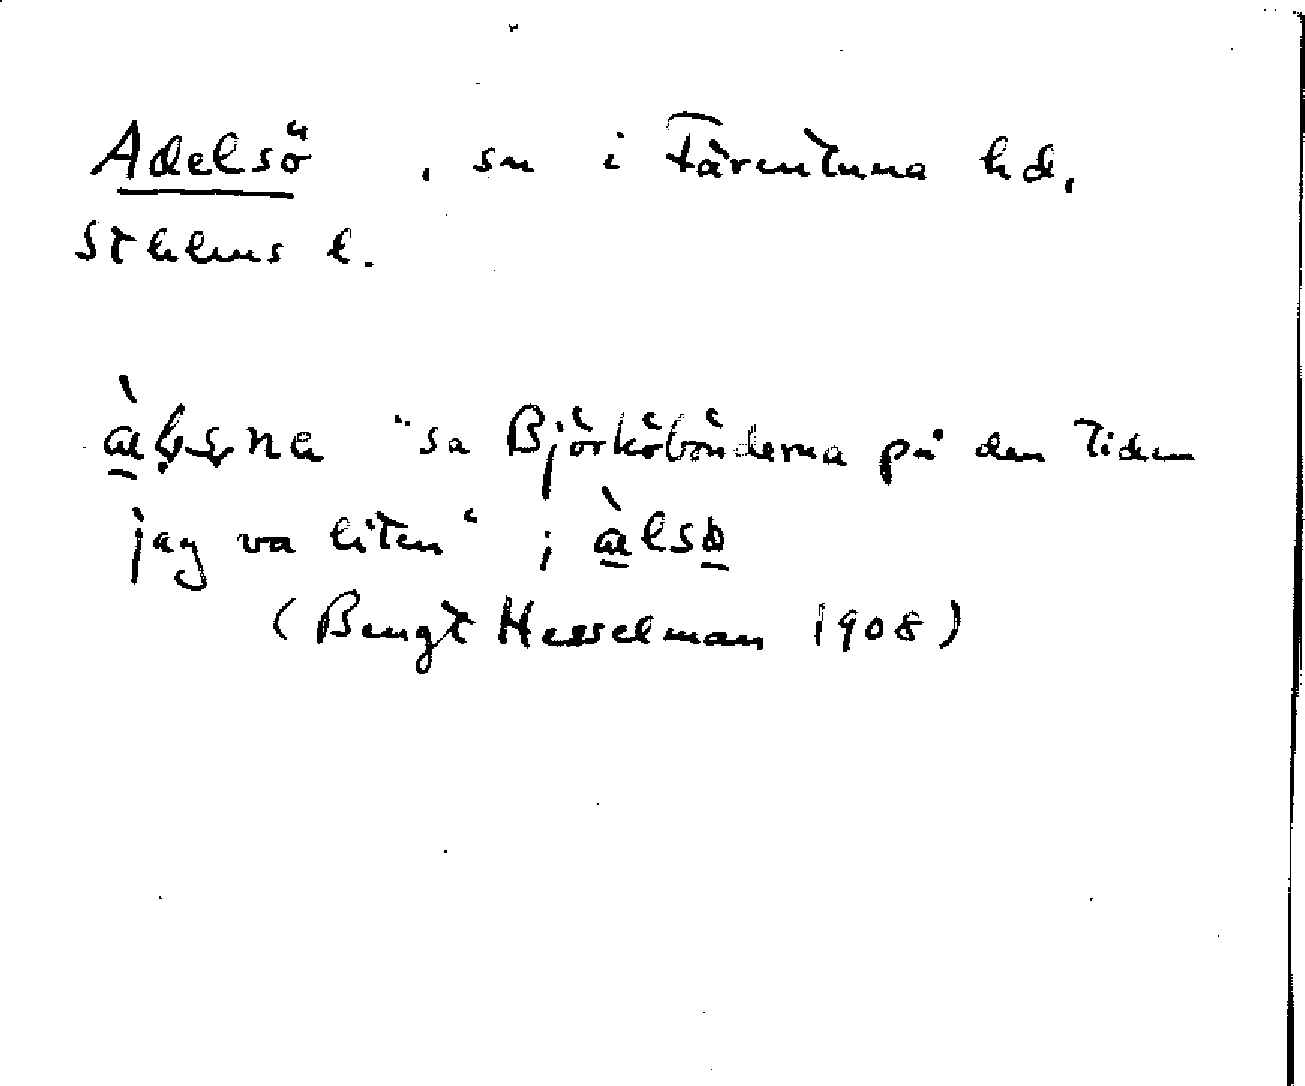 Adelsö, sn i Färentuna hd,
Sthlms l.
"sa Björköbönderna på den tiden
jag va liten"; æ̀lsö
(Bengt Hesselman 1908)